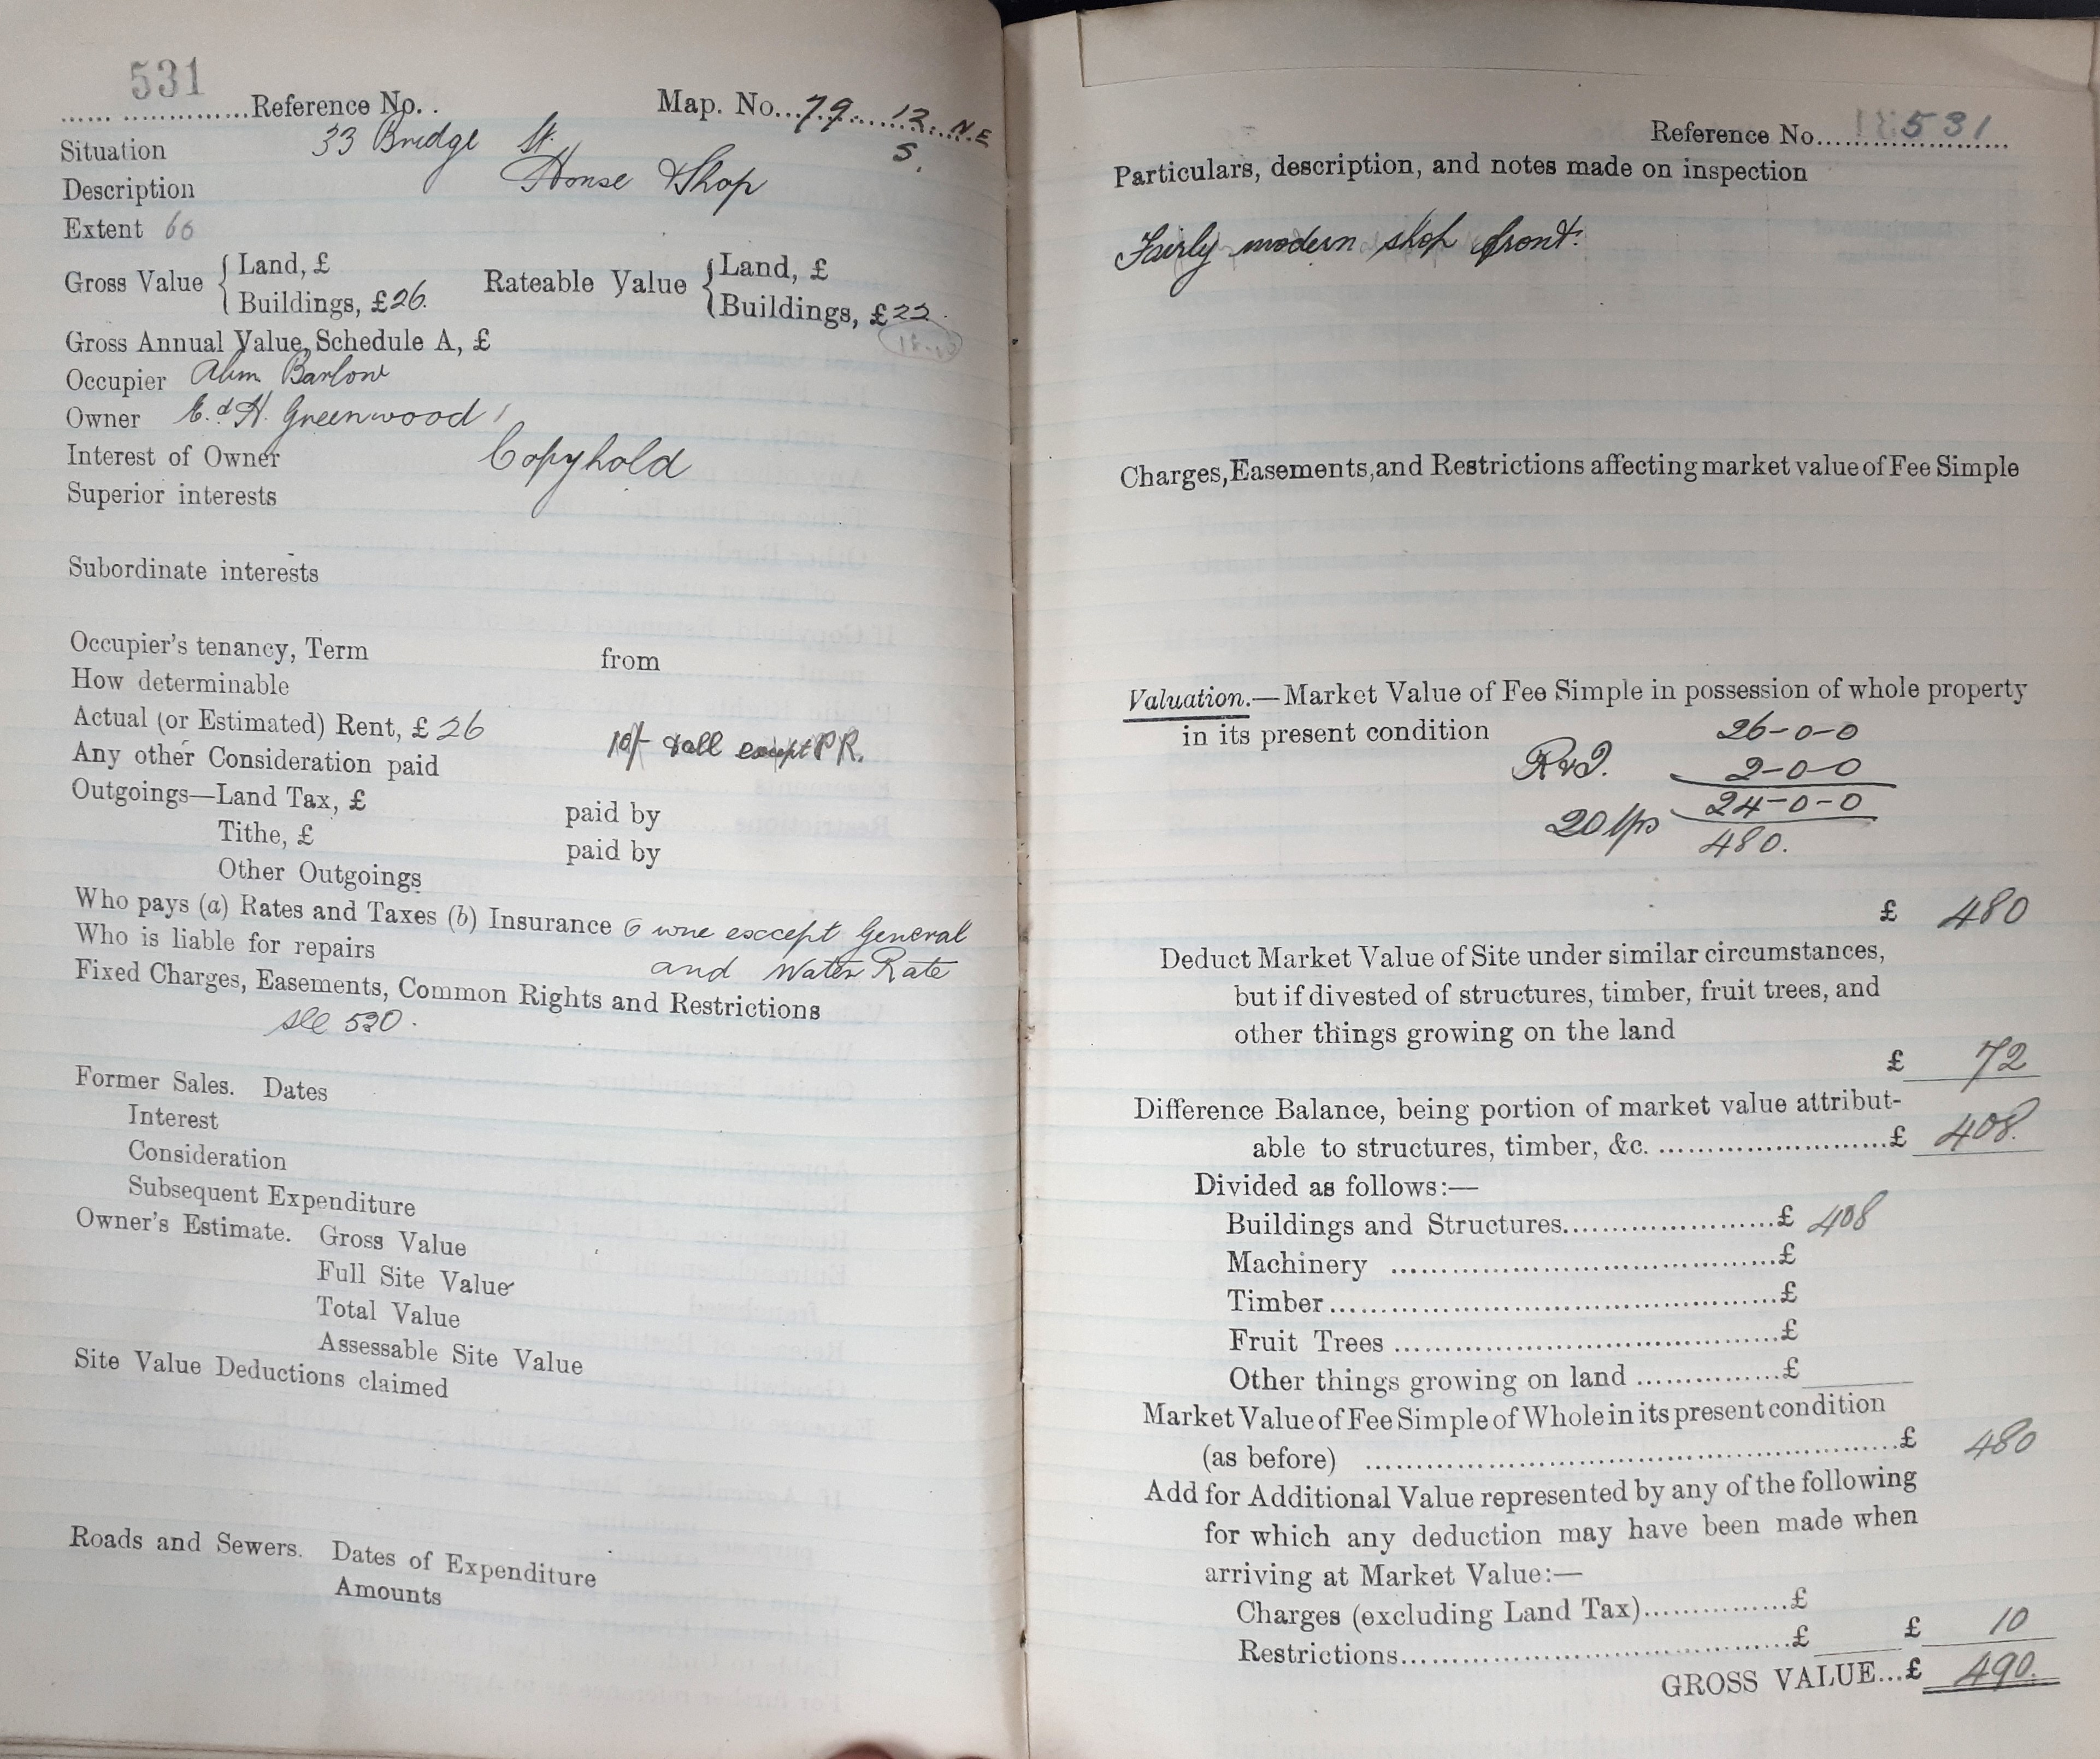 531
Reference No. . Map. No...79 12. N.E
Situation 33 Bridge St. S.
Description House & Shop
Extent 60
Gross Value { Land, £ Rateable Value { Land, £
Buildings, £26. Buildings, £22.
Gross Annual Value, Schedule A, £
Occupier Barlow
Owner H. Greenwood
Interest of Owner Copyhold
Superior interests
Subordinate interests
Occupier's tenancy, Term from
How determinable
Actual (or Estimated) Rent, £ 26
10/- except P R.
Any other Consideration paid
Outgoings—Land Tax, £ paid by
Tithe, £ paid by
Other Outgoings
Who pays (a) Rates and Taxes (b) Insurance except General
Who is liable for repairs and Water Rate
Fixed Charges, Easements, Common Rights and Restrictions
see 520.
Former Sales. Dates
Interest
Consideration
Subsequent Expenditure
Owner's Estimate. Gross Value
Full Site Value
Total Value
Assessable Site Value
Site Value Deductions claimed
Roads and Sewers. Dates of Expenditure
Amounts
Reference No. 531
Particulars, description, and notes made on inspection
Fairly modern shop front.
Charges, Easements, and Restrictions affecting market value of Fee Simple
Valuation.—Market Value of Fee Simple in possession of whole property
in its present condition 26-0-0
2-0-0
24-0-0
20 yps
480.
£ 480
Deduct Market Value of Site under similar circumstances,
but if divested of structures, timber, fruit trees, and
other things growing on the land
£ 72
Difference Balance, being portion of market value attribut-
able to structures, timber, &c. ........................£ 408.
Divided as follows:—
Buildings and Structures......................£ 408
Machinery ........................................£
Timber..............................................£
Fruit Trees .......................................£
Other things growing on land ...............£
Market Value of Fee Simple of Whole in its present condition
(as before) ......................................................£ 480
Add for Additional Value represented by any of the following
for which any deduction may have been made when
arriving at Market Value:—
Charges (excluding Land Tax)...............£
Restrictions.......................................£ £ 10
GROSS VALUE...£ 490.